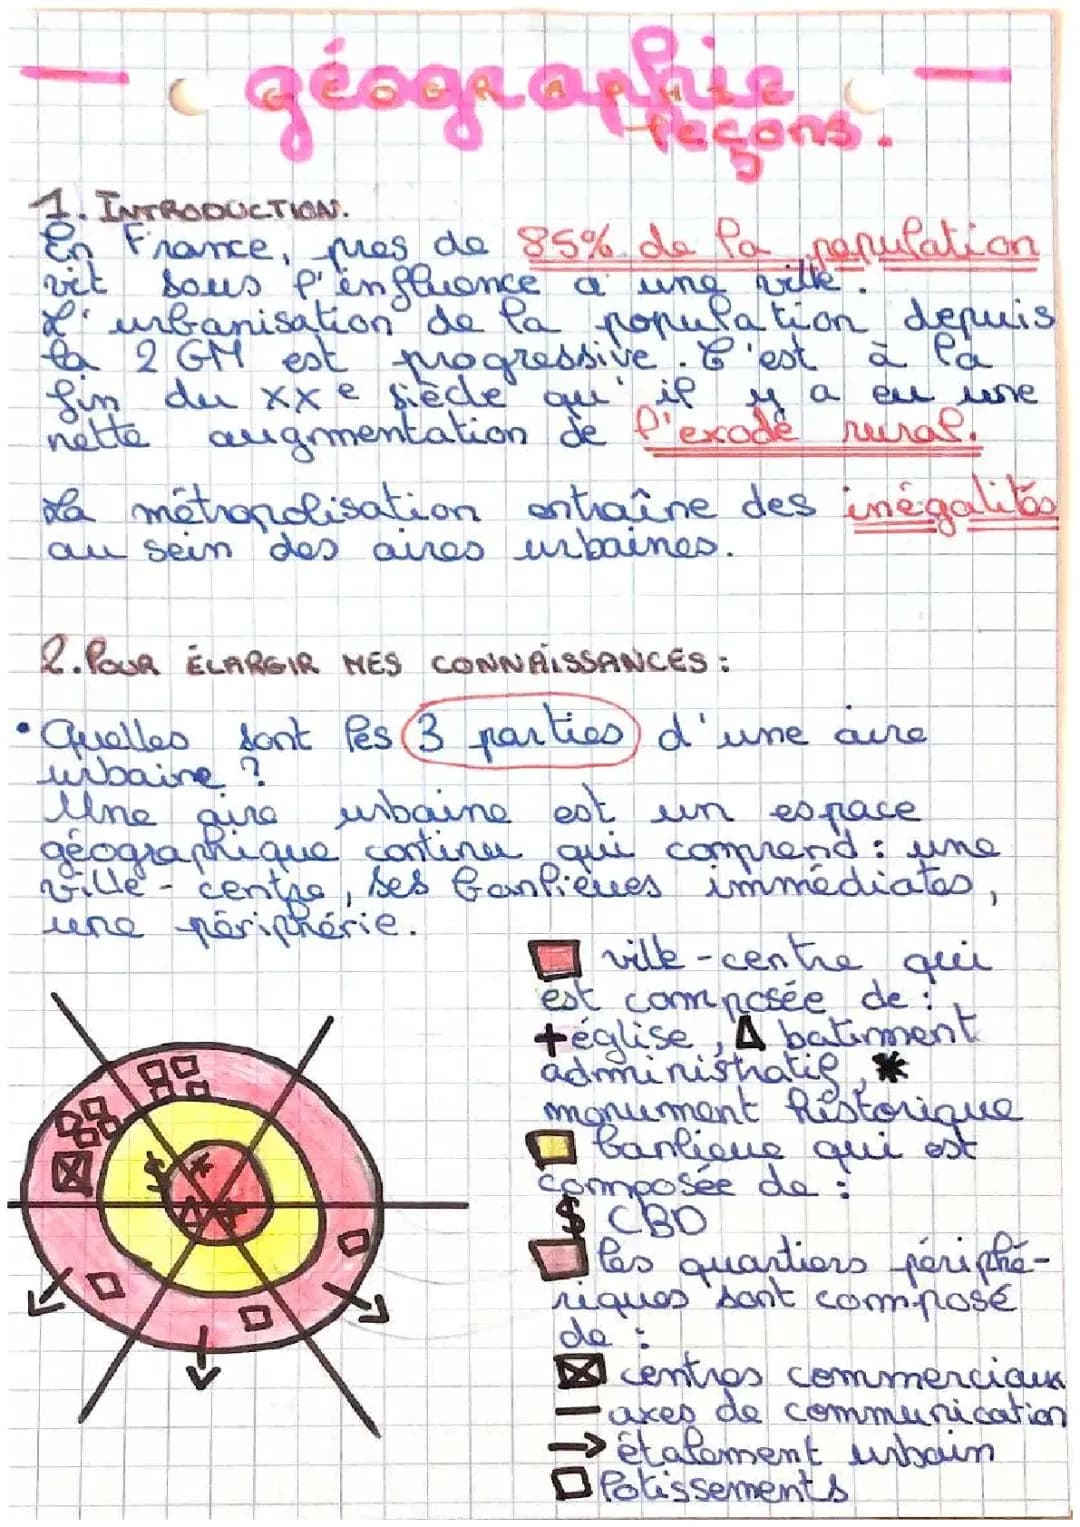 géographie
GÉOGRAPHIE
leçons.
1. INTRODUCTION.
En France, pres de 85% de la population
vit sous l'influence d'une ville.
L'urbanisation de la population depuis
la 2 GM est progressive. C'est à la
fin du XXe siècle qu'il y a eu une
nette augmentation de l'exode rural.
La métropolisation entraîne des inégalités
au sein des aires urbaines.
2. POUR ÉLARGIR MES CONNAISSANCES :
• Quelles sont les 3 parties d'une aire
urbaine ?
Une aire urbaine est un espace
géographique continu qui comprend : une
ville-centre, ses banlieues immédiates,
une périphérie.
ville-centre qui
est composée de :
+ église, Δ batiment
administratif, *
monument historique
banlieue qui est
composée de :
$ CBD
les quartiers périphé-
riques sont composé
de :
centres commerciaux
— axes de communication
→ étalement urbain
lotissements